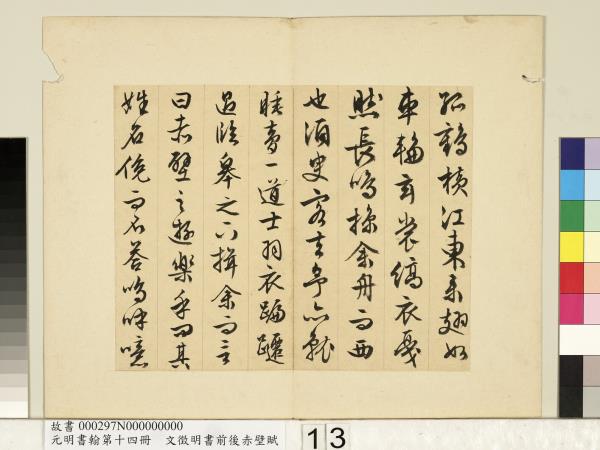 孤鶴橫江東來翅如
車輪玄裳縞衣戛
然長鳴掠余舟而西
也須臾客去予亦就
睡夢一道士羽衣蹁躚
過臨皋之下揖余而言
曰赤壁之遊樂乎問其
姓名俛而不答嗚呼噫
故書 000297N000000000
元明書翰第十四冊 文徵明書前後赤壁賦
13